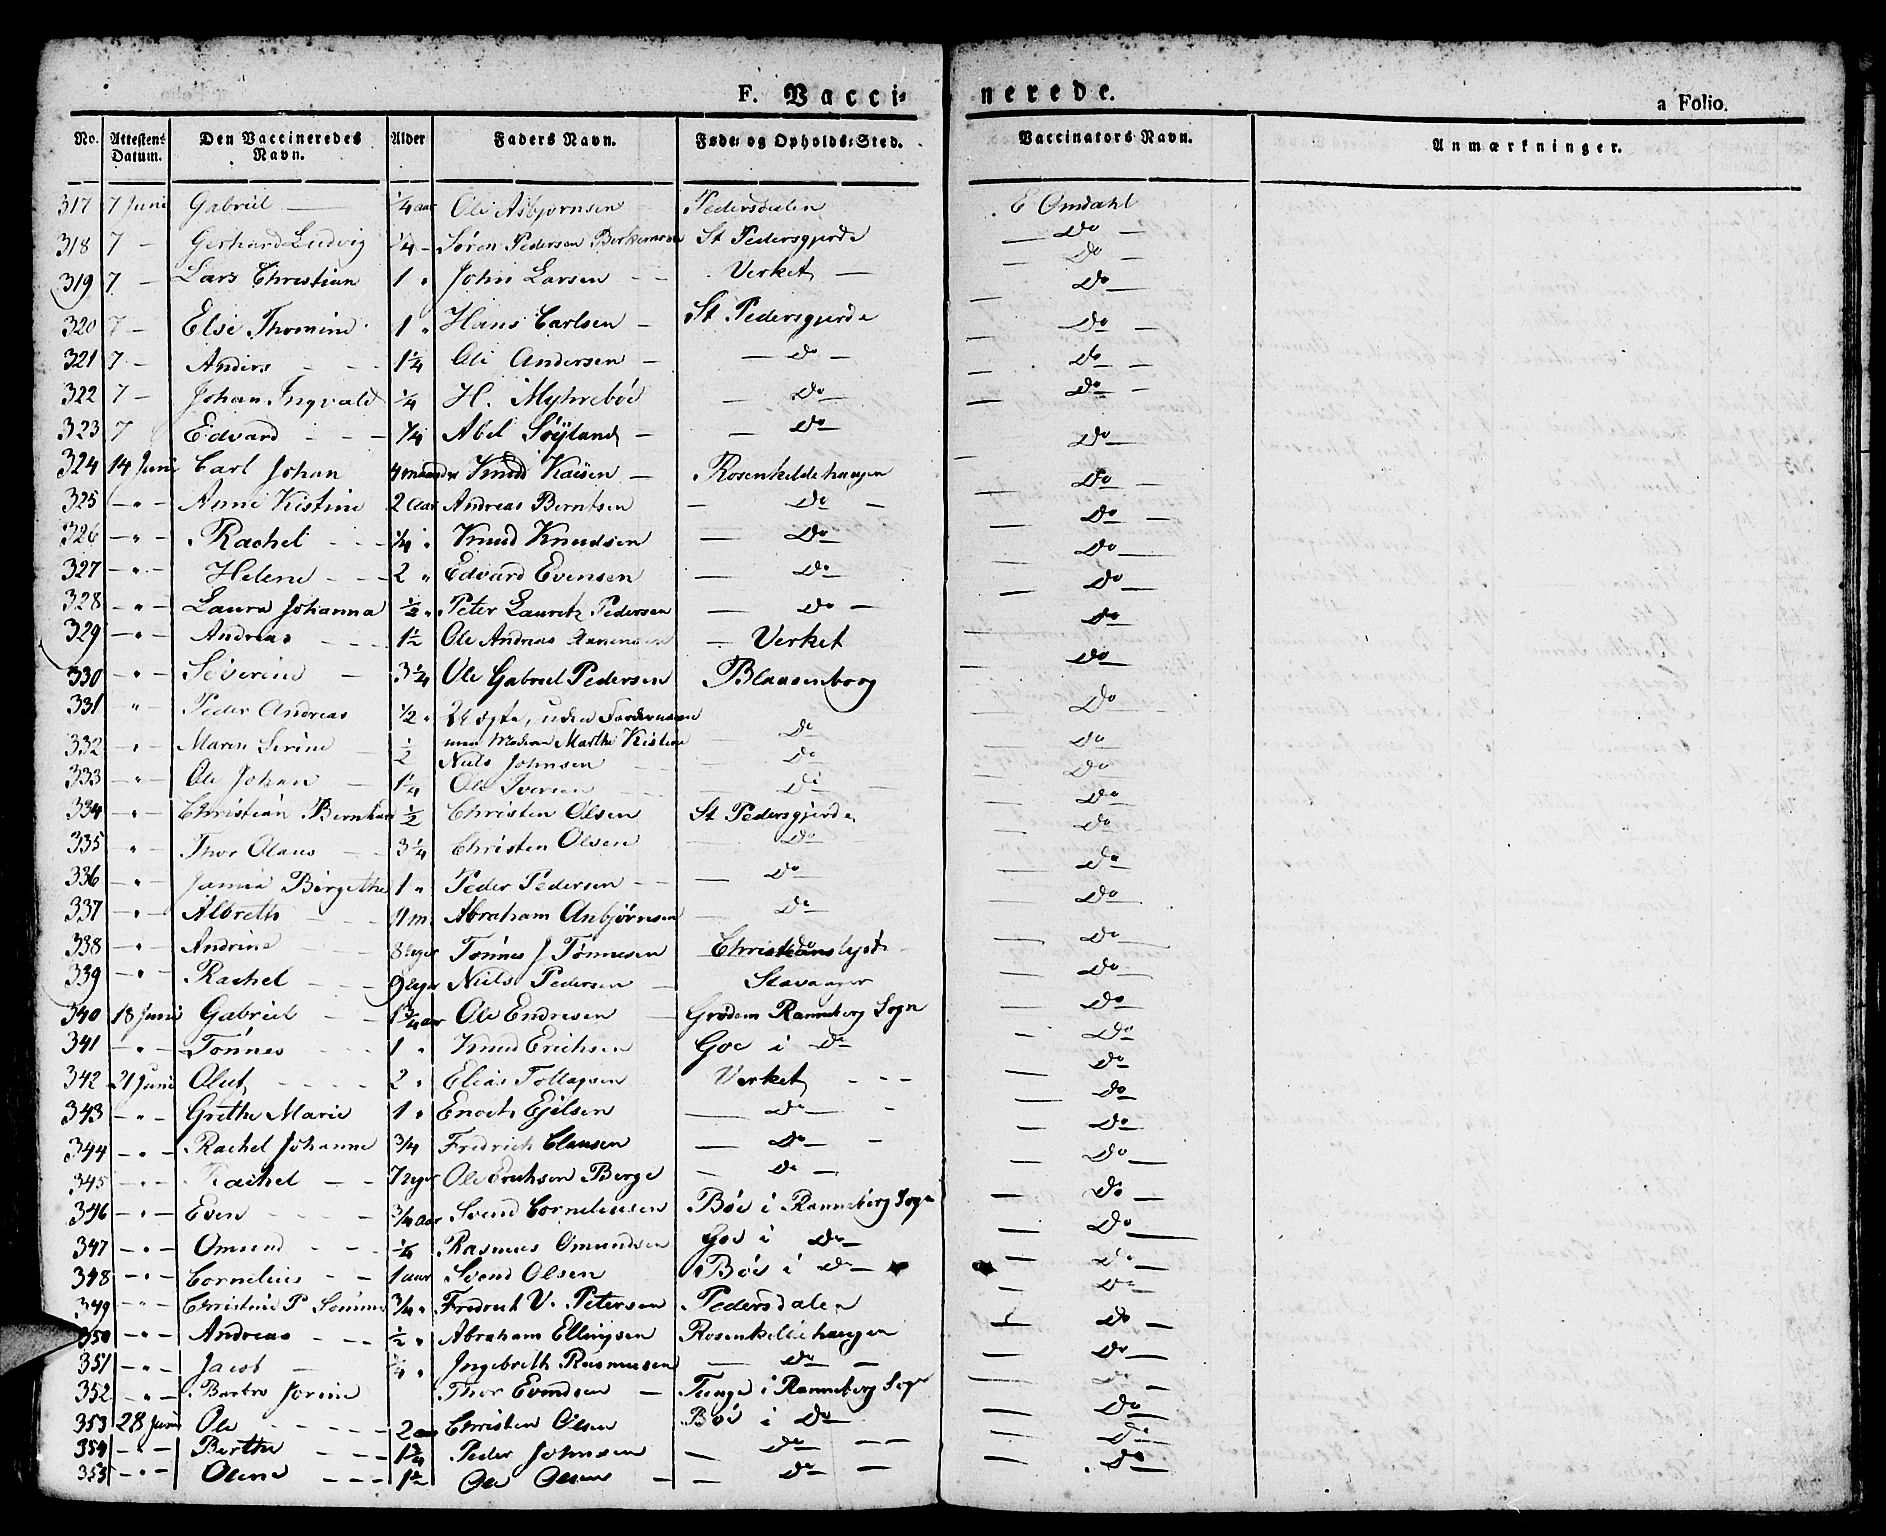 F. Vaccinerede. a Folio.
No. | Attestens Datum. | Den Vaccineredes Navn. | Alder | Faders Navn. | Føde- og Opholds-Sted. | Vaccinators Navn. | Anmærkninger.
317 | 7 Juni | Gabriel — | 1/4 aar | Ole Asbjørnsen | Pedersdalen | E Omdahl
318 | 7 — | Gerhard Ludvig | 1/4 — | Søren Pedersen | St Pedersgjerde | — Do —
319 | 7 — | Lars Christian | 1 " | John Larsen — — | Verket — | — Do —
320 | 7 — | Else Thomine | 1 " | Hans Carlsen — | St Pedersgjerde | — Do
321 | 7 — | Anders - - - | 1 1/4 | Ole Andersen — | — Do — | — Do —
322 | 7 — | Johan Ingvald | 1/4 | H. Myhrebøe | — Do — | — Do —
323 | 7 | Edvard - - - | 1/4 | Abel Søyland — | — Do — | — Do —
324 | 14 Juni | Carl Johan | 4 maaneder | Knud Kaisen — | Rosenkildehaugen | — Do —
325 | — " — | Anne Kistine | 2 aar | Andreas Berntsen | — Do — | — Do —
326 | — " — | Rachel - - - | 1/4 " | Knud Knudsen | — Do — | — Do —
327 | — " — | Helene - - - | 2 " | Edvard Evensen | — Do — | — Do —
328 | — " — | Laura Johanna | 1/2 " | Peter Lauritz Pedersen | — Do — | — Do
329 | — " — | Andreas - - - | 1 1/2 | Ole Andreas | — Verket | — Do —
330 | — " — | Severine — | 3 1/4 | Ole Gabriel Pedersen | Blaasenborg | — Do —
331 | " | Peder Andreas | 1/2 " | Uægte, uden Fadernavn men Moderen Marthe Kistine | — Do | — Do —
332 | " — | Maren Serine | 1/2 | Niels Johnsen | — Do | — Do —
333 | — " — | Ole Johan — | 1 1/4 | Ole Iversen | — Do — | — Do
334 | — " — | Christian Bernhard | 1/2 | Christen Olsen | St Pedersgjerde | — Do —
335 | " | Thor Olaus | 3 1/4 | Christen Olsen | — Do — | — Do —
336 | — " — | Birgethe | 1 " | Peder Pedersen — — | — Do — | — Do —
337 | — " — | Albreth | m | Abraham Asbjørnsen | — Do — | — Do —
338 | — " — | Andrine | 3 Uger | Tønnes J Tønnesen | Do | — Do —
339 | — " — | Rachel - - - | 9 Uger | Niels Pedersen — | Stavanger | — Do —
340 | 18 Juni | Gabriel - - | 1 3/4 aar | Ole Endresen — | Grødem Ranneberg Sogn | — Do —
341 | — " — | Tønnes - - - | 1 " | Knud Erichsen | Goe i Do | — Do —
342 | 21 Juni | Oluf - - - - | 2 " | Elias Tollagsen | Verket - - - | — Do
343 | — " — | Grethe Marie | 1 " | Enoch Ejelsen | — Do — - | — Do —
344 | — " — | Rachel Johanne | 3/4 | Fredrich Clausen | — Do — - | — Do —
345 | — " — | Rachel — — | 7 Uger | Ole Erichsen Berge | — Do — | — Do —
346 | — " — | Even - - - - | 3/4 aar | Svend Corneliussen | Bøe i Ranneberg Sogn | — Do —
347 | — " — | Omund - - - | 1/4 | Rasmus Omundsen | Goe i Do | — Do —
348 | — " — | Cornelius - - | 1 aar | Svend Olsen | Bøe i Do — | — Do —
349 | — " — | Christine P | 3/4 " | Fredrich V. Petersen | Pedersdalen | — Do —
350 | — " — | Andreas - - - | 1/2 " | Abraham Ellingsen | Rosenkildehaugen | — Do —
351 | — " — | Jacob — | 1/4 " | Ingebreth Rasmussen | — Do — | — Do —
352 | — " — | Barbro Jorine | | Thor Evindsen — | Tunge i Ranneberg Sogn | — Do —
353 | 28 Juni | Ole - - - - | 2 aar | Christen Olsen | Bøe i Do | — Do —
354 | — " — | Berthe - - - | 1 3/4 | Peder Johnsen | — Do — — | — Do —
355 | — " — | Olene - - - | 1 1/2 | Ole Olsen — | — Do — | — Do —